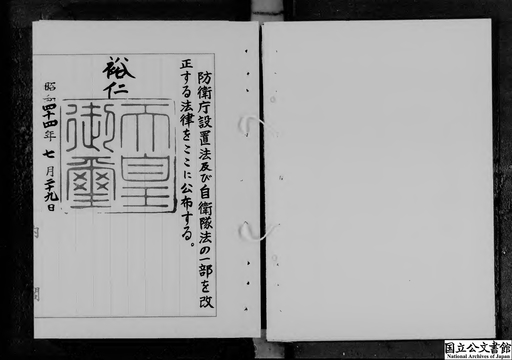 防衛庁設置法及び自衛隊法の一部を改
正する法律をここに公布する。
裕仁
天皇
御璽
昭和四十四年七月二十九日
内閣
国立公文書館
National Archives of Japan